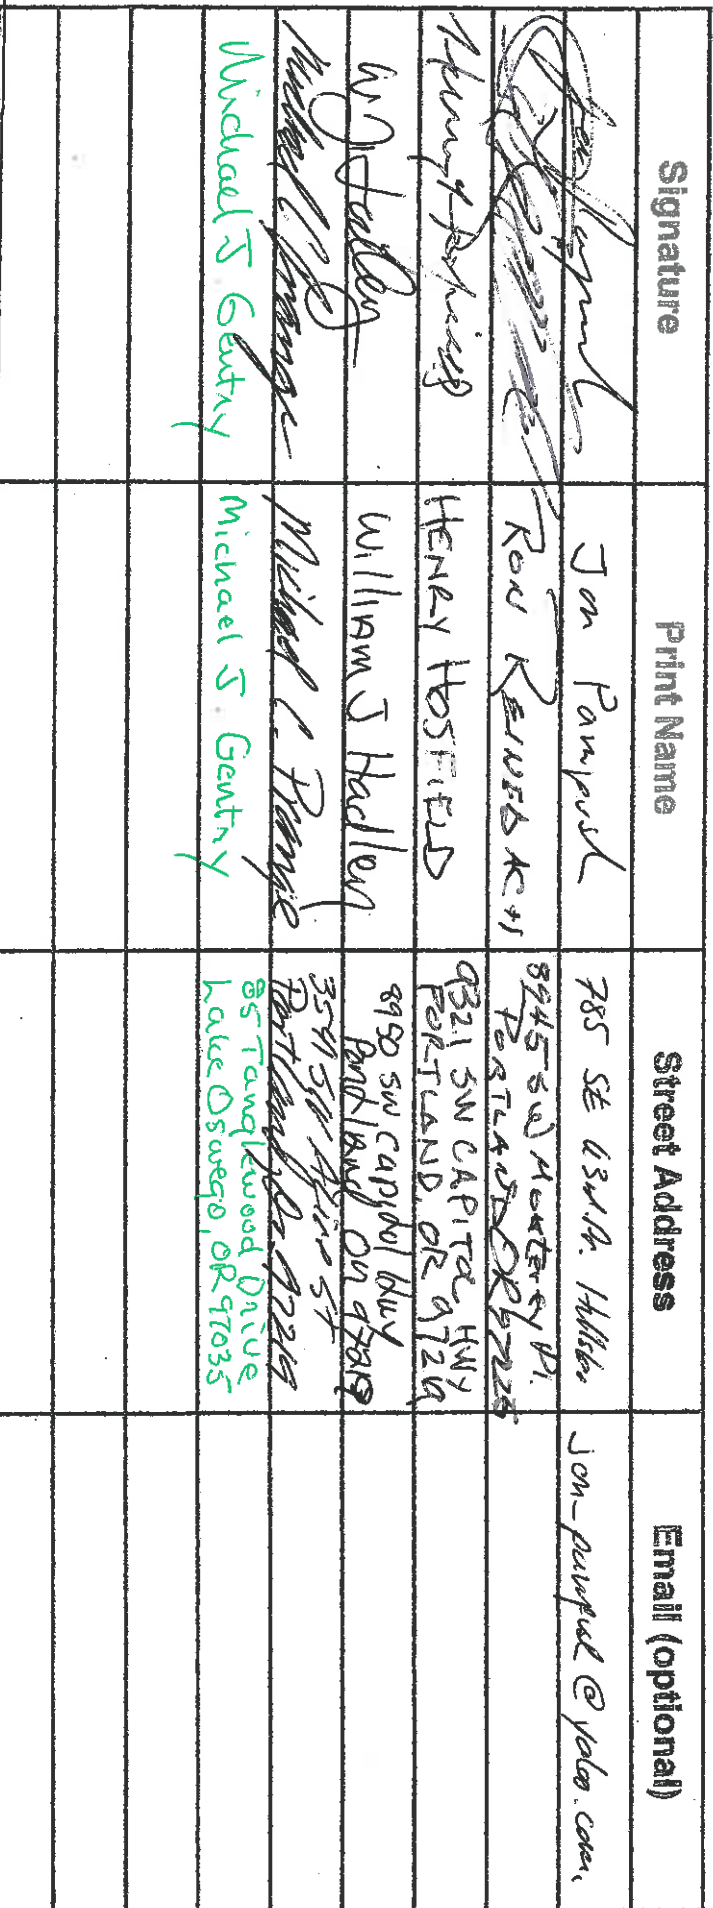 Signature Print Name Street Address Email (optional)
Jon Pampush 785 SE 63rd. Dr. Hillsboro jon_pampush@yahoo.com
RON REINEBACH 8945 SW Monterey Pl.
PORTLAND OR 97225
HENRY HOSFIELD 9321 SW CAPITOL HWY
PORTLAND, OR 97219
WJ Hadley WilliAm J Hadley 8980 SW Capitol Hwy
Portland OR 97219
Michael C. Prange Michael C. Prange St
Portland, Or. 97219
Michael J Gentry Michael J Gentry 85 Tanglewood Drive
Lake Oswego, OR 97035